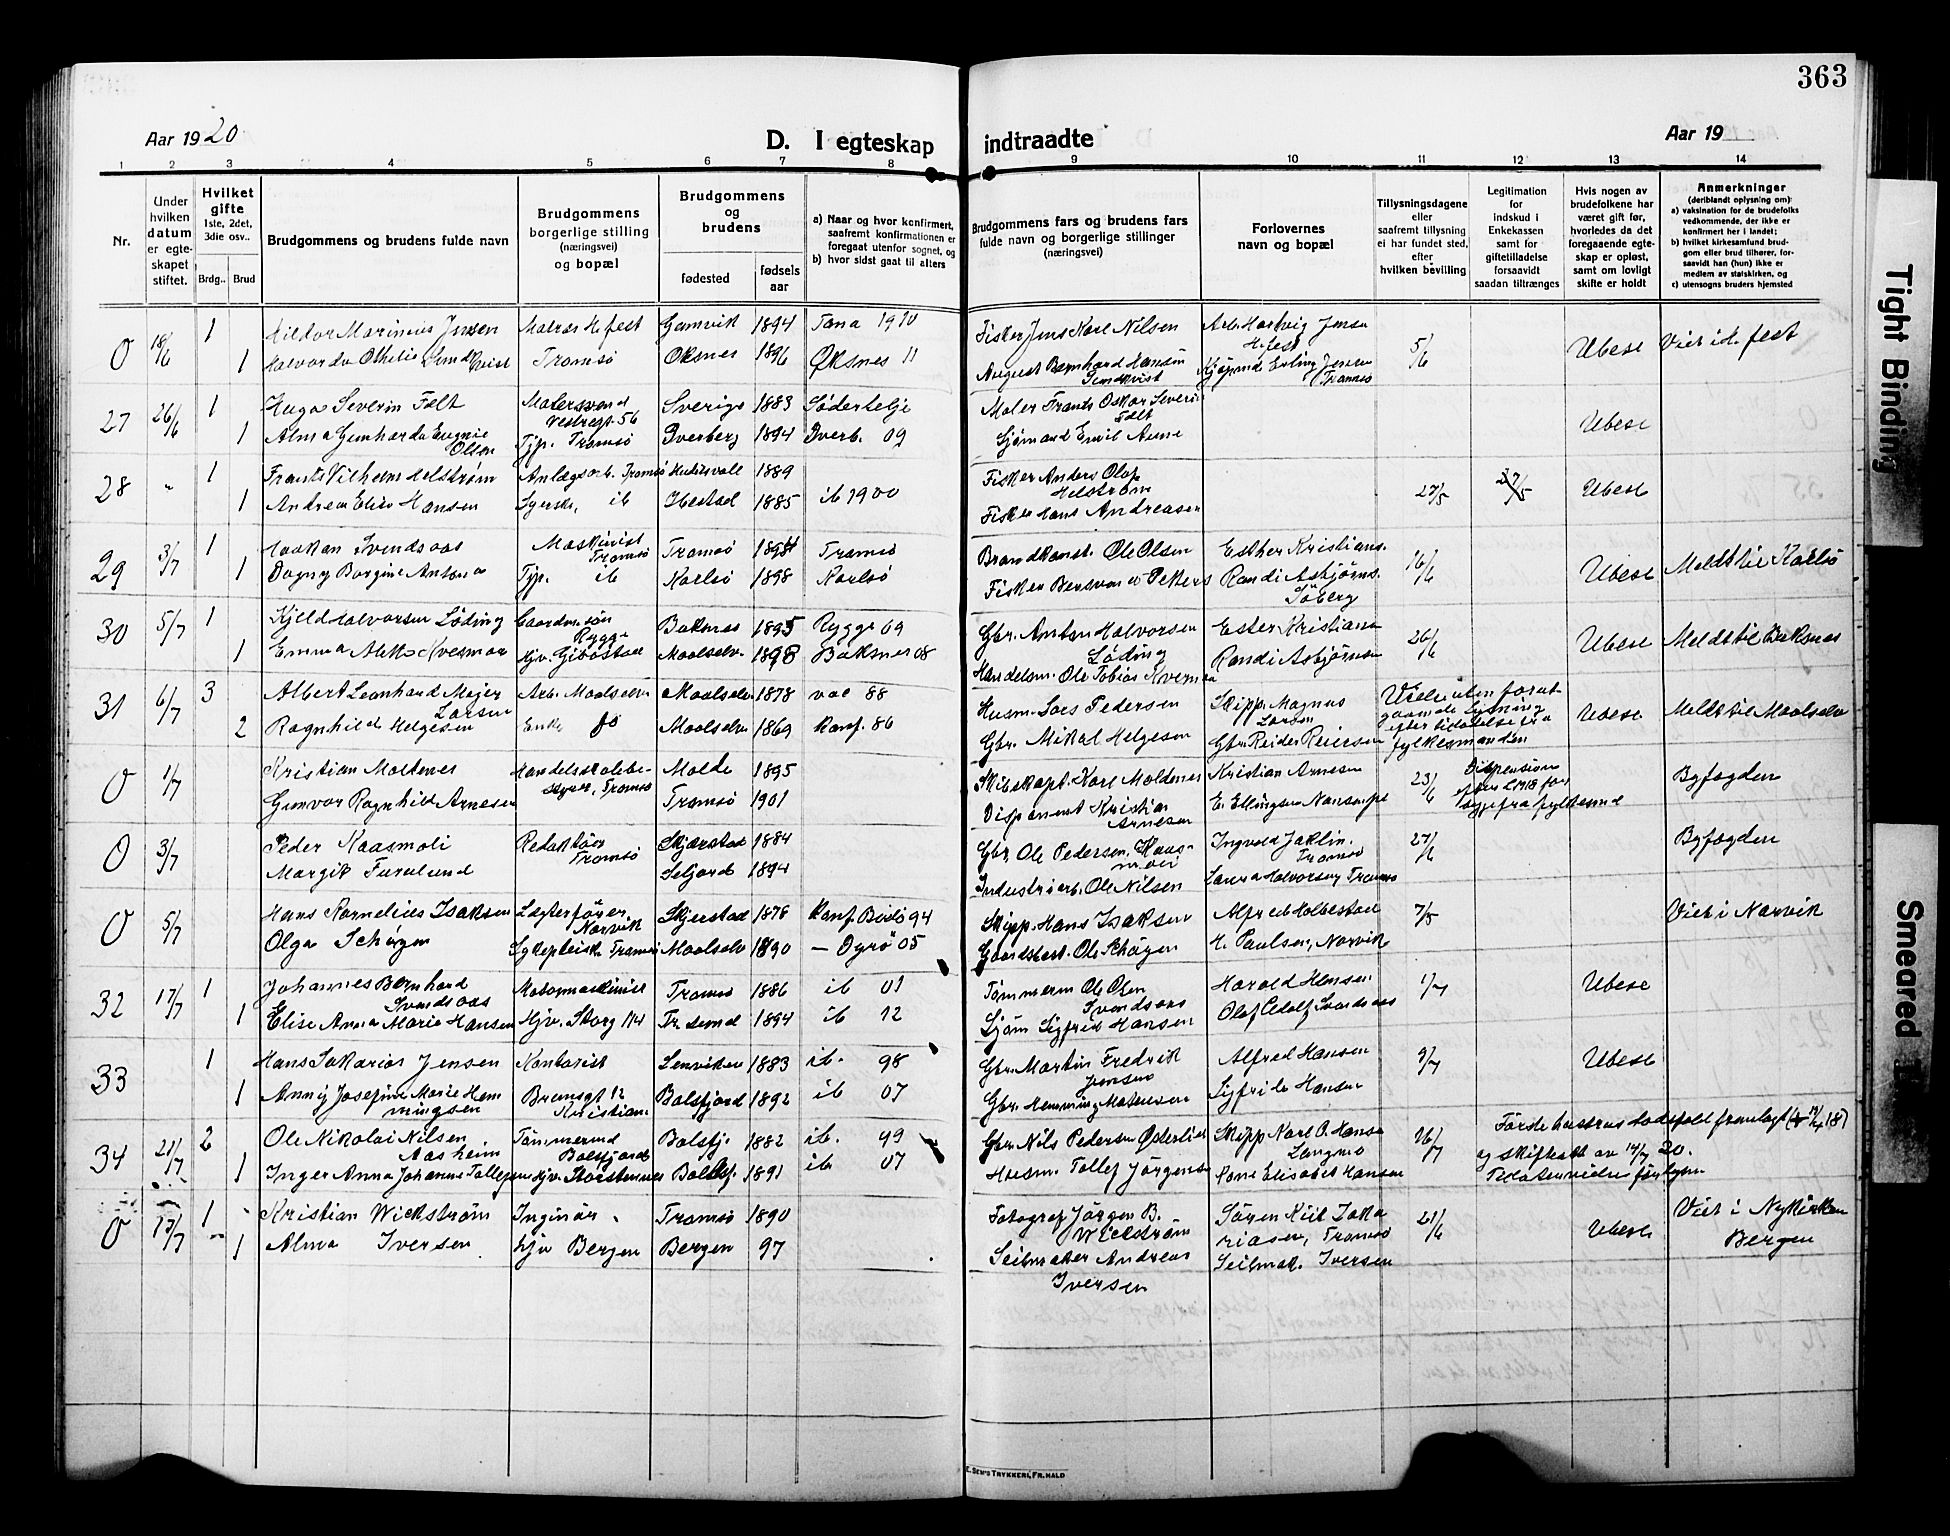 363
Aar 1920
D. I egteskap indtraadte
Aar 19
1 2 3 4 5 6 7 8 9 10 11 12 13 14
Nr.
Under hvilken datum er egteskapet stiftet.
Hvilket gifte
1ste, 2det, 3die osv..
Brdg.. Brud
Brudgommens og brudens fulde navn
Brudgommens borgerlige stilling (næringsvei) og bopæl
Brudgommens og brudens
fødested
fødsels aar
a) Naar og hvor konfirmert, saafremt konfirmationen er foregaat utenfor sognet, og
b) hvor sidst gaat til alters
Brudgommens fars og brudens fars fulde navn og borgerlige stillinger (næringsvei)
Forlovernes navn og bopæl
Tillysningsdagene eller saafremt tillysning ei har fundet sted, efter hvilken bevilling
Legitimation for indskud i Enkekassen samt for giftetilladelse forsaavidt saadan tiltrænges
Hvis nogen av brudefolkene har været gift før, hvorledes da det foregaaende egteskap er opløst, samt om lovligt skifte er holdt
Anmerkninger
(deriblandt oplysning om)
a) vaksination for de brudefolks vedkommende, der ikke er konfirmert her i landet;
b) hvilket kirkesamfund brudgom eller brud tilhører, forsaavidt han (hun) ikke er medlem av statskirken, og
c) utensogns bruders hjemsted
0 18/6 1 Hildor Marinius Jensen Matros H.fest Gamvik 1894 Tana 1910 Fisker Jens Karl Nilsen Arb. Hartvig Jense H.fest
1 Halvorda Othelie Lundkvist Tromsø Øksnes 1896 Øksnes 11 August Bernhard Hansen Lundkvist Kjøpmd Erling Jensen Tromsø 5/6 Ubesl Viet i H.fest
27 26/6 1 Hugo Severin Fält Malersvend Vestregt. 56 Sverige 1883 Södertelje Maler Frants Oskar Severi Fält
1 Alma Gunharda Eugenie Olsen Tjp. Tromsø Dverberg 1894 Dverb. 09 Sjømand Emil Aune Ubesl
28 " 1 Frants Vilhelm Helstrøm Anlægsarb. Tromsø Hudiksvall 1889 Fisker Anders Olof Helstrøm
1 Andrea Elise Hansen Syersk, ib Ibestad 1885 ib 1900 Fisker Hans Andreasen 27/5 27/5 Ubesl
29 3/7 1 Haakon Svendsaas Maskinist Tromsø Tromsø 1898 Tromsø Brandkonst. Ole Olsen Esther Kristians.
1 Dagny Bergine Antona Tjp. ib Karlsø 1898 Karlsø Fisker Bersvend Peters Randi Asbjørns. Søberg 16/6 Ubesl Meldt til Karlsø
30 5/7 1 Kjeld Halvorsen Løding Gaardm. søn Rygge Buksnes 1895 Rygge 09 Gbr. Anton Halvorsen Løding Ester Kristians
1 Emma Aleks Kvesmoe Hjv. Gibostad Maalselv 1898 Buksnes 08 Handelsm. Ole Tobias Kvesmoe Randi Asbjørnsen 26/6 Ubesl Meldt til Buksnes
31 6/7 3 Albert Leonhard Mejer Larsen Arb. Maalselv Maalselv 1878 vac 88 Husm. Lars Pedersen Skipp. Magnus Larsen Vielse uten forutgaaende lysning
2 Ragnhild Helgesen Enke fø Maalselv 1869 Konf. 86 Gbr. Mikal Helgesen Gbr. Reider Reiersen efter tilladelse fra fylkesmanden Ubesl Meldt til Maalselv
0 1/7 Kristian Moldenes Handelsskolebestyrer, Tromsø Molde 1895 Skibskapt. Karl Moldenes Kristian Arnesen 23/6 Dispension efter L 1918 for syge fra fylkesmd Byfogden
Gunvor Ragnhild Arnesen Tromsø 1901 Disponent Kristian Arnesen E. Ellingsen
0 3/7 Peder Kaasmoli Redaktør Tromsø Skjærstad 1884 Gbr. Ole Pedersen Kaasmoli Ingvald Jaklin. Tromsø 27/6 Byfogden
Margit Furulund Seljord 1894 Industriarb. Ole Nilsen Laura Halvorsen Tromsø
0 5/7 Hans Kornelius Isaksen Lægterfører, Narvik Skjerstad 1878 Konf Bodø 94 Skipp. Hans Isaksen Alfred Holbestad 7/5 Viet i Narvik
Olga Schøgen Sykepleiske Tromsø Maalselv 1890 – Dyrø 05 Gaardsbest. Ole Schøgen H. Paulsen, Narvik
32 17/7 1 Johannes Bernhard Svendsaas Motormaskinist Tromsø 1886 ib 01 Tømmerm Ole Olsen Svendsaas Harald Hansen 1/7 Ubesl
1 Elise Anna Marie Hansen Hjv. Storg 114 Tr. sund 1894 ib 12 Sjøm Sigfrid Hansen Olaf Adolf Svendsaas
33 1 Hans Sakarias Jensen Kontorist Lenviken 1883 ib. 98 Gbr. Martin Fredrik Jensen Alfred Hansen 9/7 Ubesl
1 Anny Josefine Marie Hemmingsen Brumsgt 12 Kristian. Balsfjord 1892 ib 07 Gbr. Hemming Matessen Sigfride Hansen
34 21/7 2 Ole Nikolai Nilsen Aasheim Tømmermd Balsfjord Balsfj. 1882 ib. 99 Gbr. Nils Pedersen Østerlid Skipp Karl O. Hansen Langmo 16/7 Første hustrus dødsfald fremlagt
1 Inger Anna Johanne Tollefsen Hjv. Storstennes Balsfj. 1891 ib 07 Husm. Tollef Jørgensen Lone Elisabet Hansen og skifteatt av 14/7 20.
0 17/7 1 Kristian Wickstrøm Inginør. Tromsø 1890 Fotograf Jørgen B. Wickstrøm Søren Kiil Zakariasen, Tromsø 21/6 Ubesl Viet i Nykirken Bergen
1 Alma Iversen Hjv Bergen Bergen 97 Seilmaker Andreas Iversen Seilmak. Iversen
E. SEM'S TRYKKERI, FR.HALD
Tight Binding
Smeared